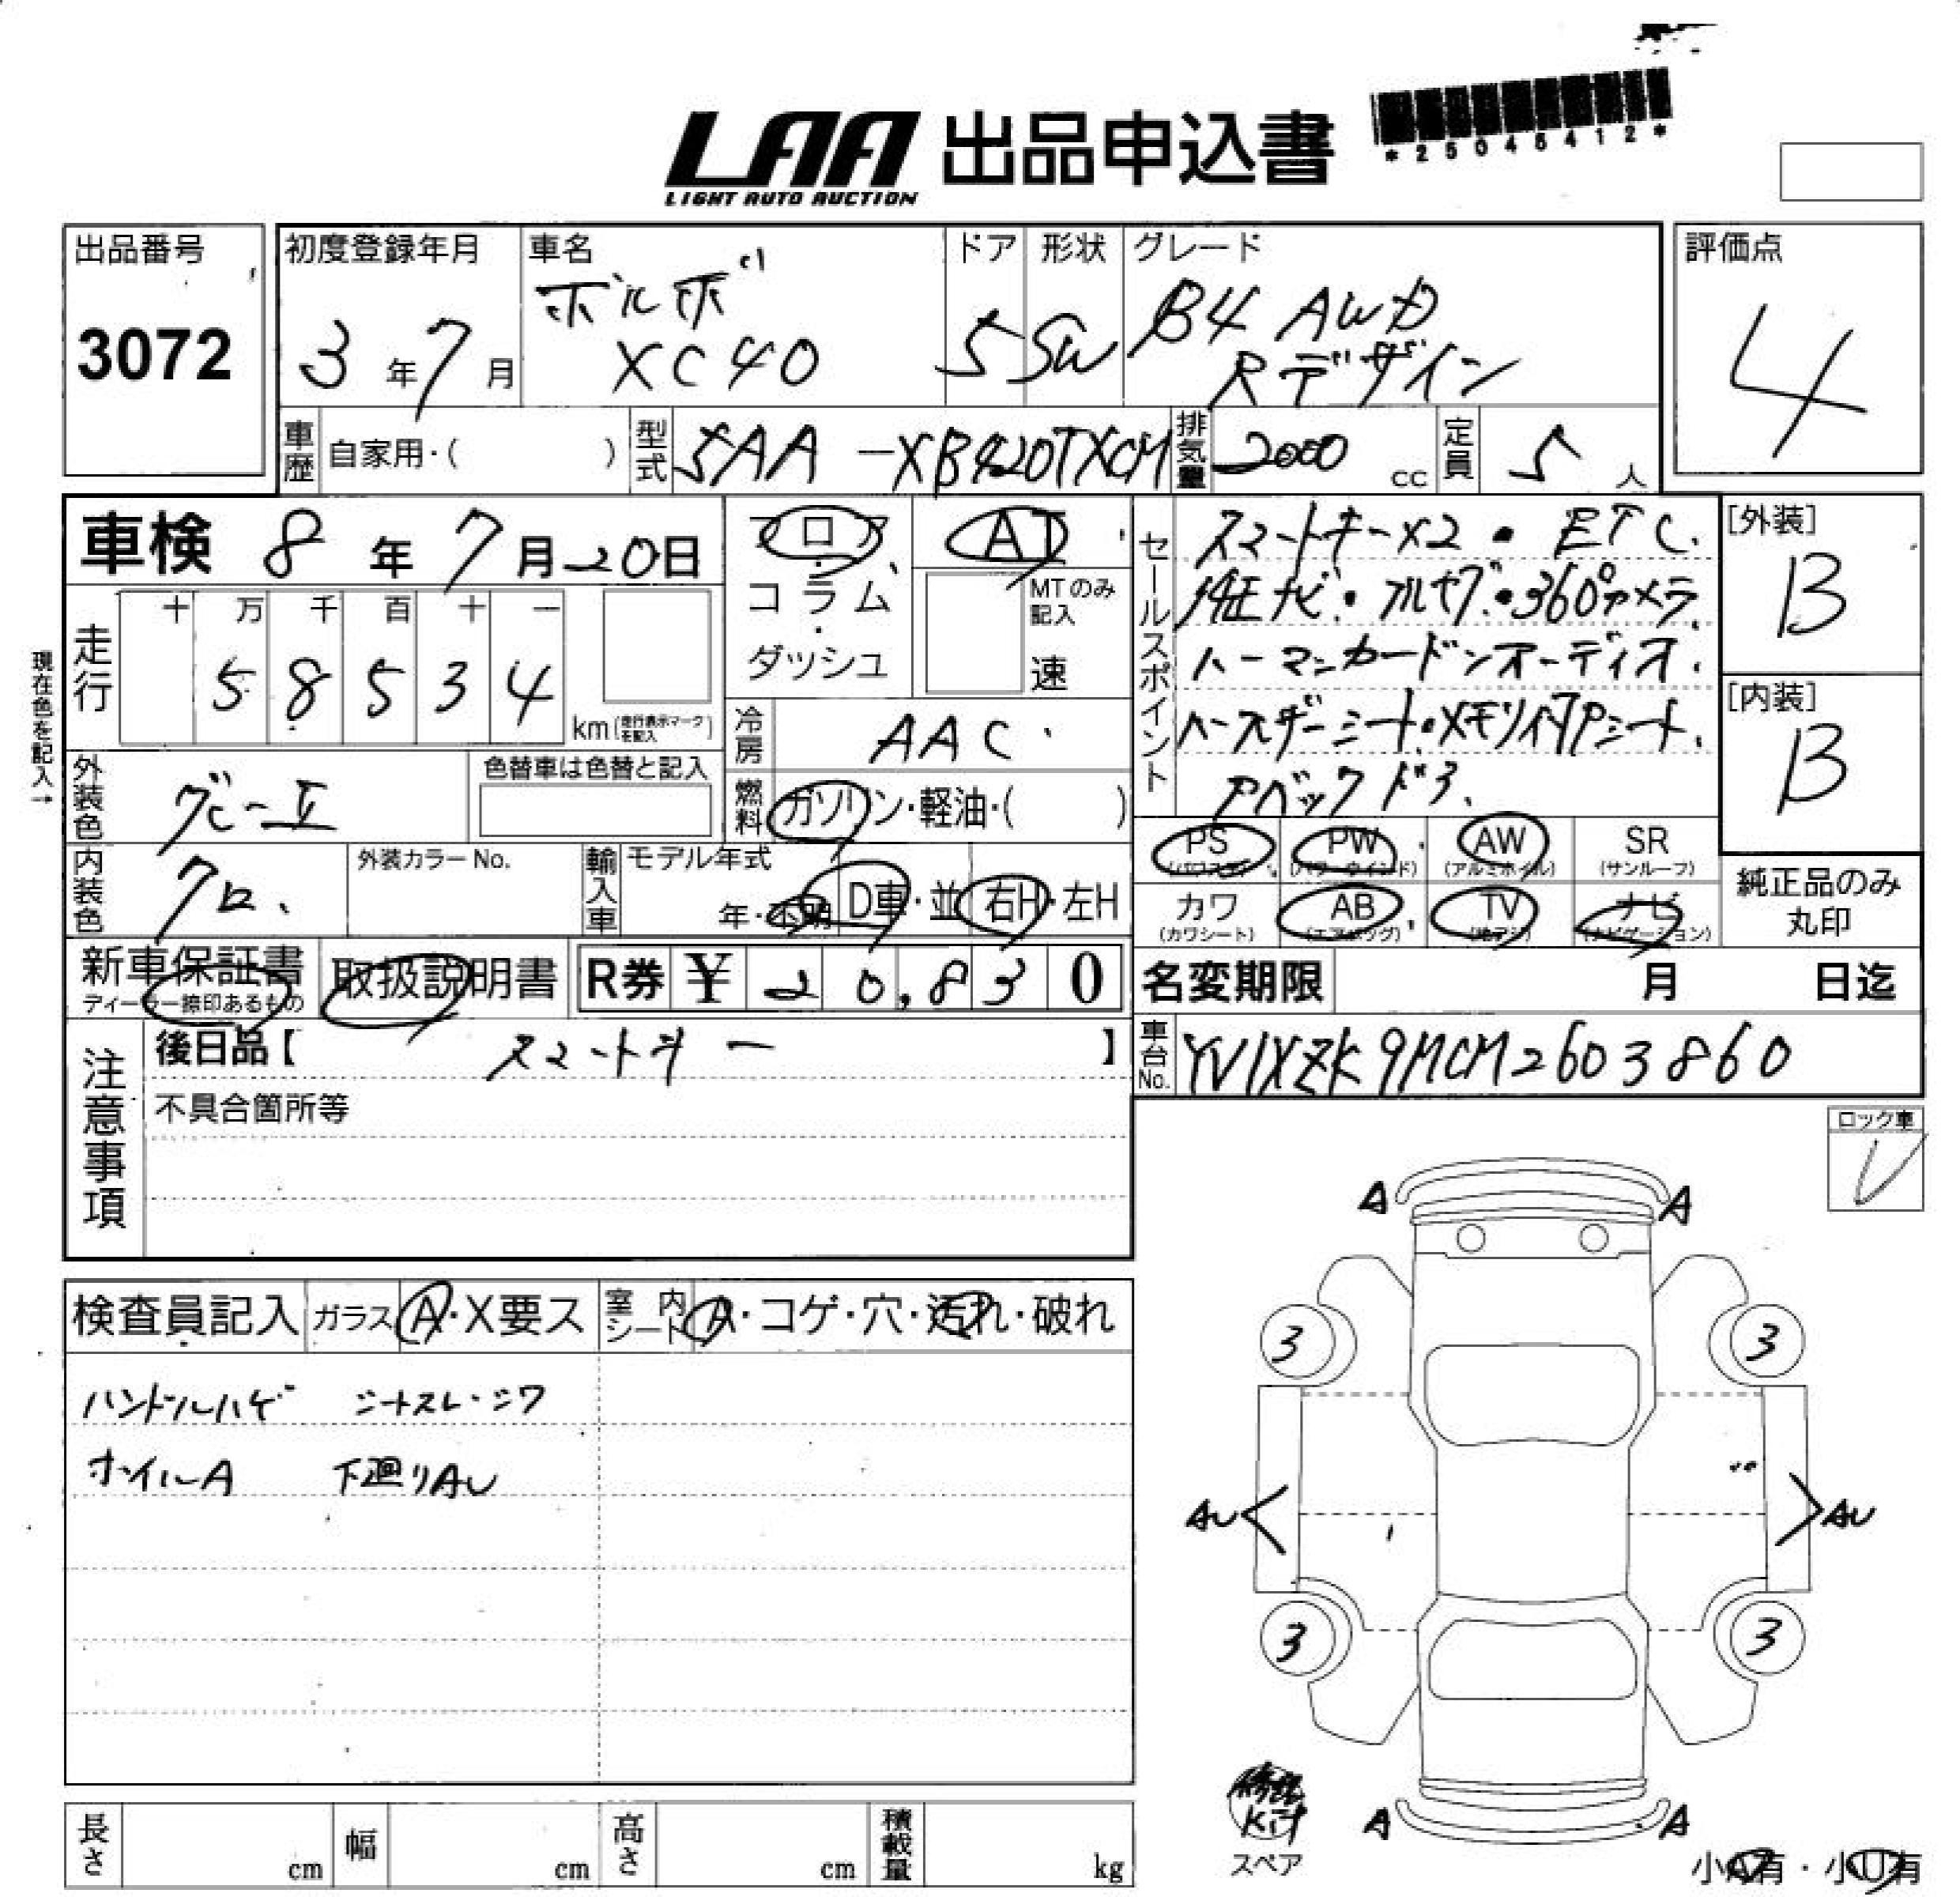 LAA 出品申込書
LIGHT AUTO AUCTION
*25045412*
出品番号
3072
初度登録年月
3年7月
車名
ボルボ
XC40
ドア
5
形状
SW
グレード
B4 AWD
Rデザイン
評価点
4
車歴 自家用・( )
型式 5AA-XB420TXCM
排気量 2000 cc
定員 5人
車検 8年7月20日
フロア
・
コラム
・
ダッシュ
AT
MTのみ記入
速
セールスポイント
スマートキーX2・ETC.
純正ナビ・フルセグ・360°カメラ
ハーマンカードンオーディオ.
シート・メモリイ付Pシート.
Pバックドア.
[外装]
B
[内装]
B
現在色を記入→
走行
十 万 千 百 十 一
5 8 5 3 4
km(走行表示マークを記入)
冷房 AAC
外装色
色替車は色替と記入
燃料 ガソリン・軽油・( )
内装色 クロ.
外装カラーNo.
輸入車 モデル年式
年・不明 D車・並 右H・左H
PS
(パワステ)
PW
(パワーウインド)
AW
(アルミホイル)
SR
(サンルーフ)
カワ
(カワシート)
AB
(エアバッグ)
TV
(テレビ)
ナビ
(ナビゲーション)
純正品のみ
丸印
新車保証書
ディーラー捺印あるもの
取扱説明書
R券 ¥ 20,830
名変期限 月 日迄
注意事項
後日品【 スマートキー 】
車台No. YV1XZK9MCM2603860
不具合箇所等
ロック車
レ
A A
検査員記入 ガラス A・X要ス 室内シート A・コゲ・穴・汚れ・破れ
3 3
ハンドルハゲ シートスレ・シワ
ホイルA 下廻りAU
AU AU
3 3
修理
Kit
スペア
A A
長さ cm 幅 cm 高さ cm 積載量 kg
小A有・小U有